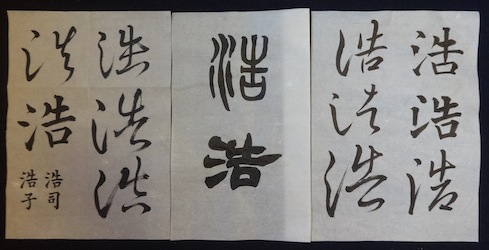 浩
浩
浩
浩
浩
浩
浩
浩
浩
浩
浩
浩
浩
浩司
浩子